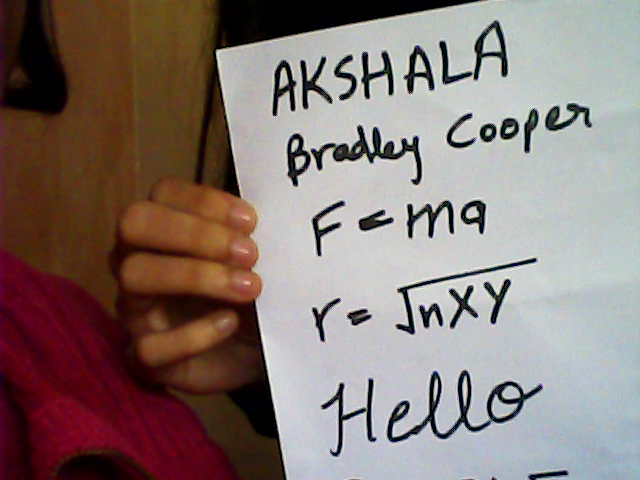 AKSHALA
Bradley Cooper
F = ma
r = √nXY
Hello